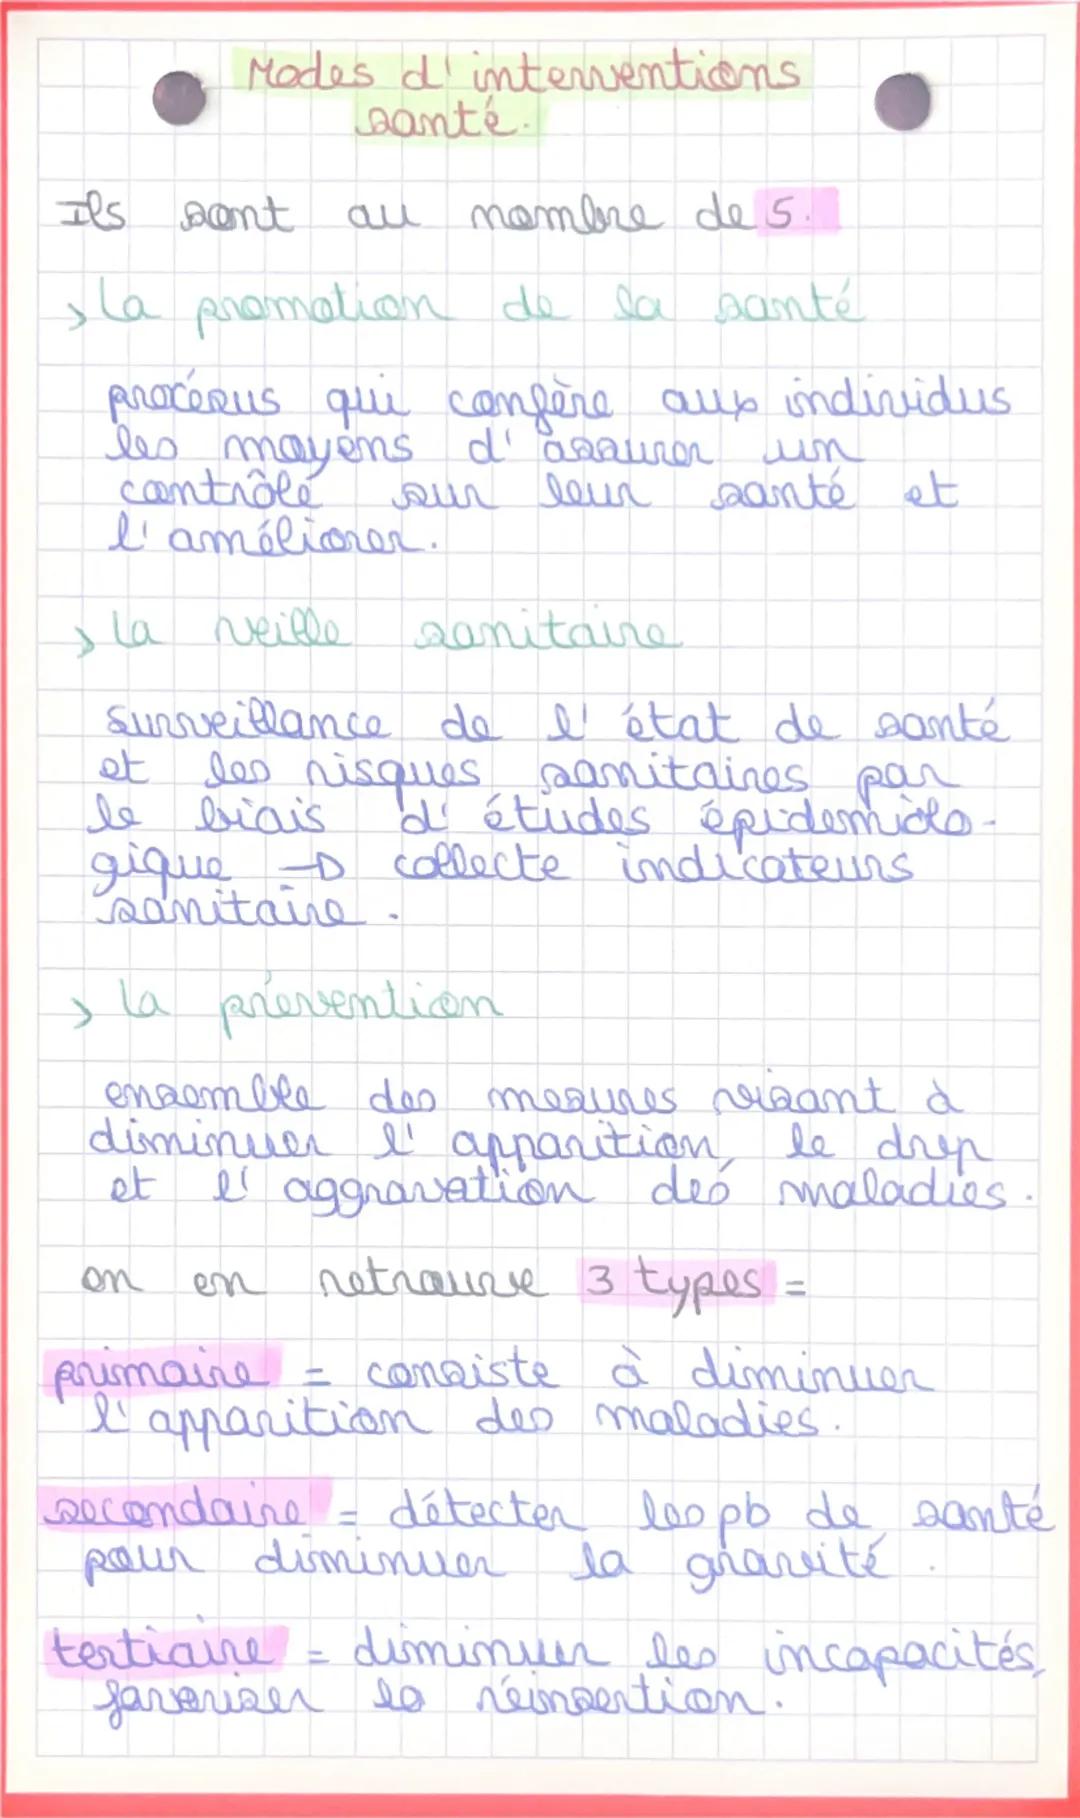 Modes d'interventions
santé.
Ils sont au nombre de 5.
> la promotion de la santé
procésus qui confère aux individus
les moyens d'assurer un
contrôle sur leur santé et
l'améliorer.
> la veille sanitaire
surveillance de l'état de santé
et les risques sanitaires par
le biais d'études épidémiolo-
gique → collecte indicateurs
sanitaire.
> la prévention
ensemble des mesures visant à
diminuer l'apparition, le drep
et l'aggravation des maladies.
on en retrouve 3 types =
primaire = consiste à diminuer
l'apparition des maladies.
secondaire = détecter les pb de santé
pour diminuer la gravité.
tertiaire = diminuer les incapacités,
favoriser la réinsertion.